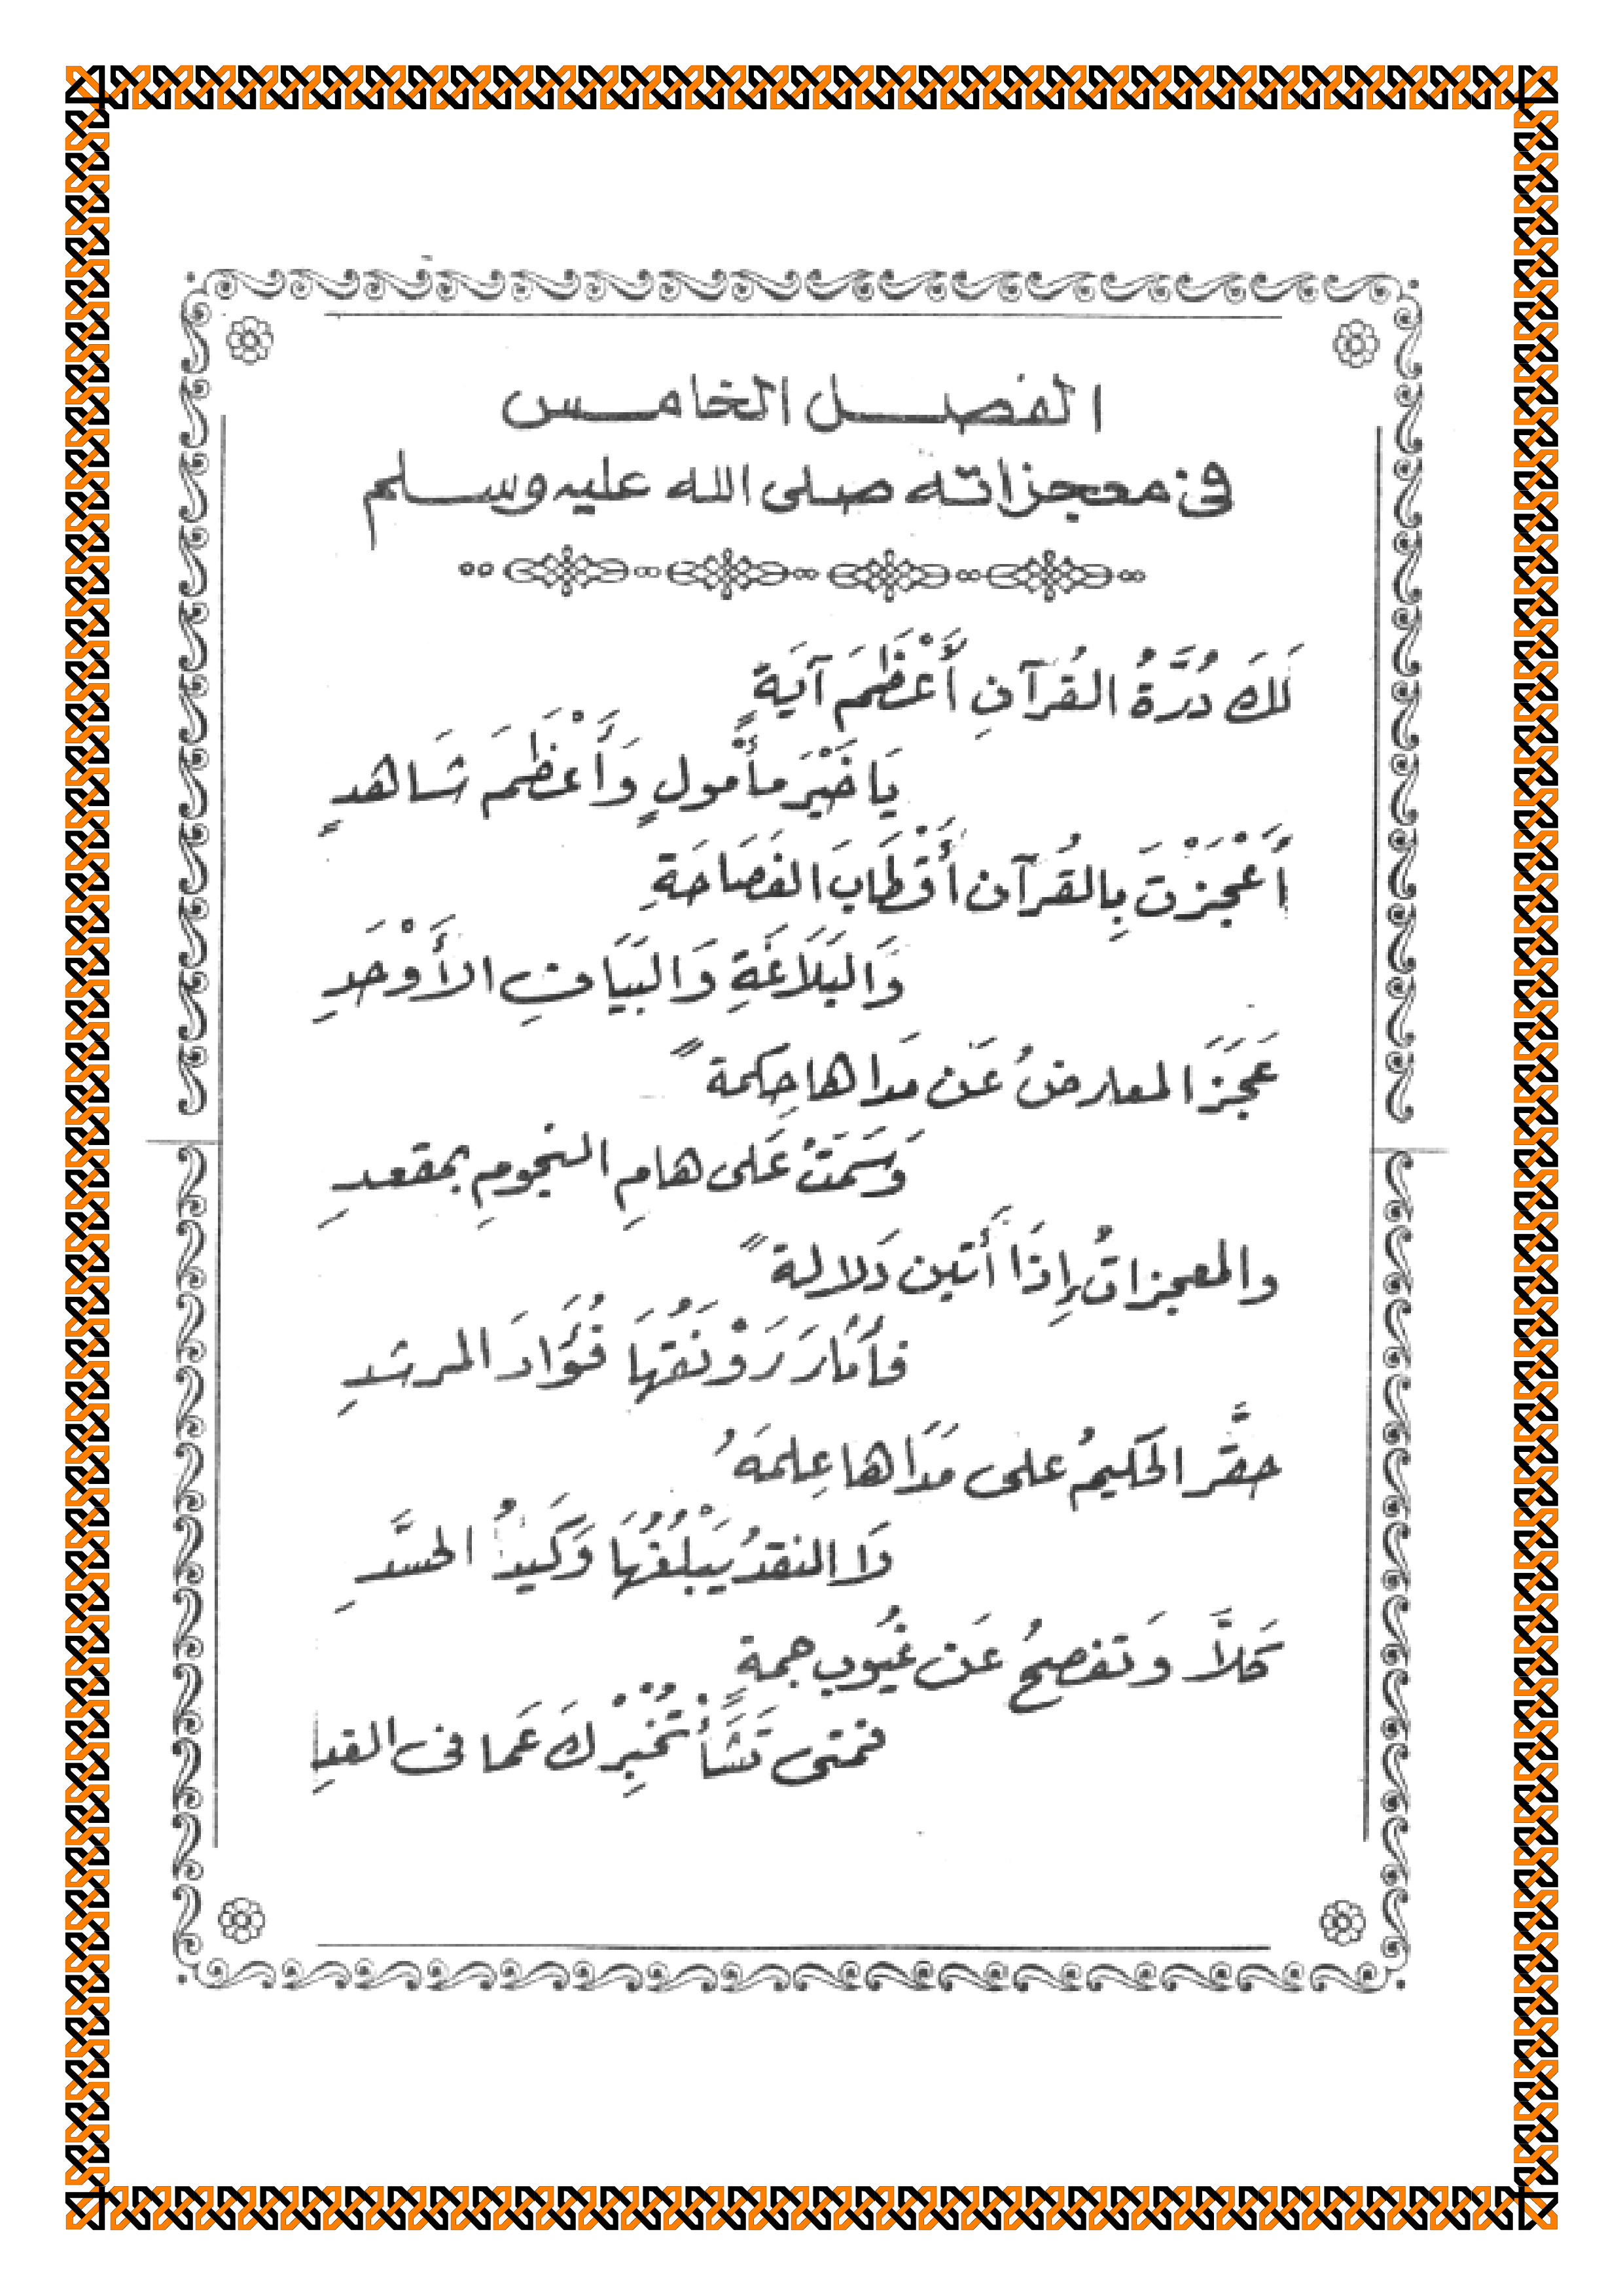 الفصل الخامس
في معجزاته صلى الله عليه وسلم
لَكَ دُرَّةُ القُرآنِ أَعْظَمَ آيَةٍ
يَا خَيْرَ مأْمولٍ وَأَعْظَمَ شَاهدٍ
أَعْجَزْتَ بِالقُرآن أَقْطَابَ الفَصَاحَةِ
وَالبَلَاغَةِ وَالبَيَانِ الأَوْحَدِ
عَجَزَ المعارضُ عَن مَداها حِكمةً
وَسَمَتْ عَلى هامِ النجُومِ بمقعدِ
والمعجزاتُ إِذَا أَتين دَلالةً
فأَنَارَ رَوْنَقُهَا فُؤَادَ المرشدِ
حقَّر الحكيمُ على مَدَاها عِلمَهُ
وَلا النقدُ يَبْلُغُهَا وَكَيدُ الحسَّدِ
كَلاَّ وَتفصحُ عَن غيُوبٍ جمةٍ
فمتى تَشَأْ تُخْبِرْكَ عَما فى الغدِ